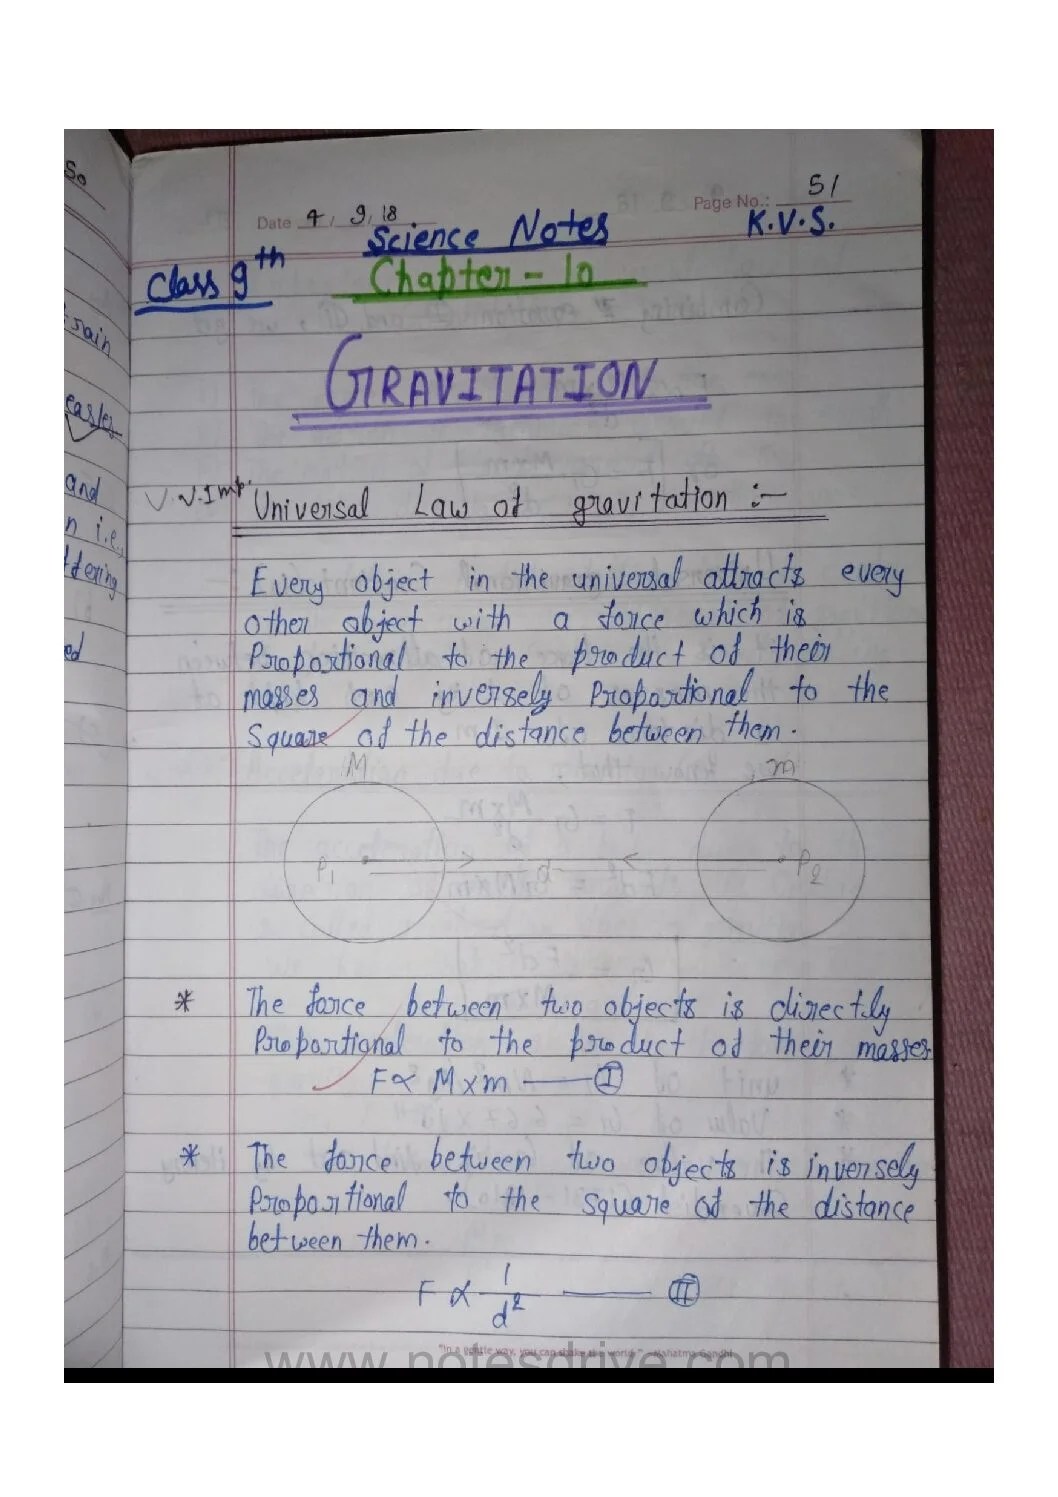 So
Page No.: 51
Date 4, 9, 18
K.V.S.
Science Notes
Class 9th
Chapter - 10
GRAVITATION
V. V. Imp. Universal Law of gravitation :-
Every object in the universal attracts every
other object with a force which is
Proportional to the product of their
masses and inversely Proportional to the
Square of the distance between them.
M m
P1 d P2
* The force between two objects is directly
Proportional to the product of their masses
F ∝ M x m —— I
* The force between two objects is inversely
Proportional to the square of the distance
between them.
F ∝ 1/d² —— II
"In a gentle way, you can shake the world." -Mahatma Gandhi
www.notesdrive.com
and
n i.e.,
ed